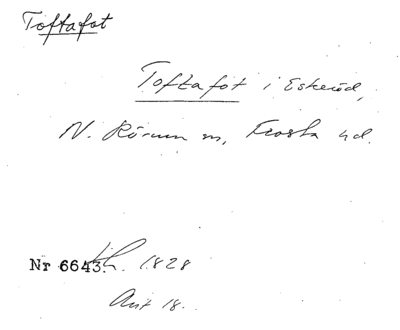 Toftafot
Toftafot i Eskeröd,
N. Rörum sn, Frosta hd.
Nr 6643. 1828
Ant 18.